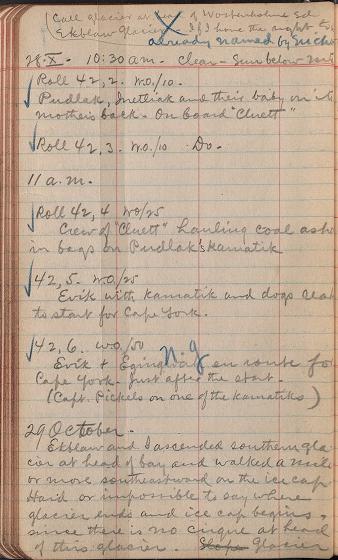 Call glacier at head of Wostenholme Sd
Ekblaw Glacier. If I have the right to.
already named by
28-X- 10:30 am. Clear - Sun below
Roll 42, 2. W.O./10.
Pudlak, Inetliak and their baby on its
mother's back - On board "Cluett"
Roll 42, 3. W.O./10 Do.
11 a.m.
Roll 42, 4 WO/25
Crew of "Cluett" hauling coal ash
in bags on Pudlak's Kamatik
42, 5. W.O/25
Evik with Kamatik and dogs
to start for Cape York.
42, 6. WO/50
N.G
Evik + en route for
Cape York. Just after the start.
(Capt. Pickels on one of the Kamatiks)
29 October.
Ekblaw and I ascended southern gla-
cier at head of bay and walked a mile
or more southeastward on the ice cap.
Hard or impossible to say where
glacier ends and ice cap begins,
since there is no cirque at head
of this glacier. Glacier